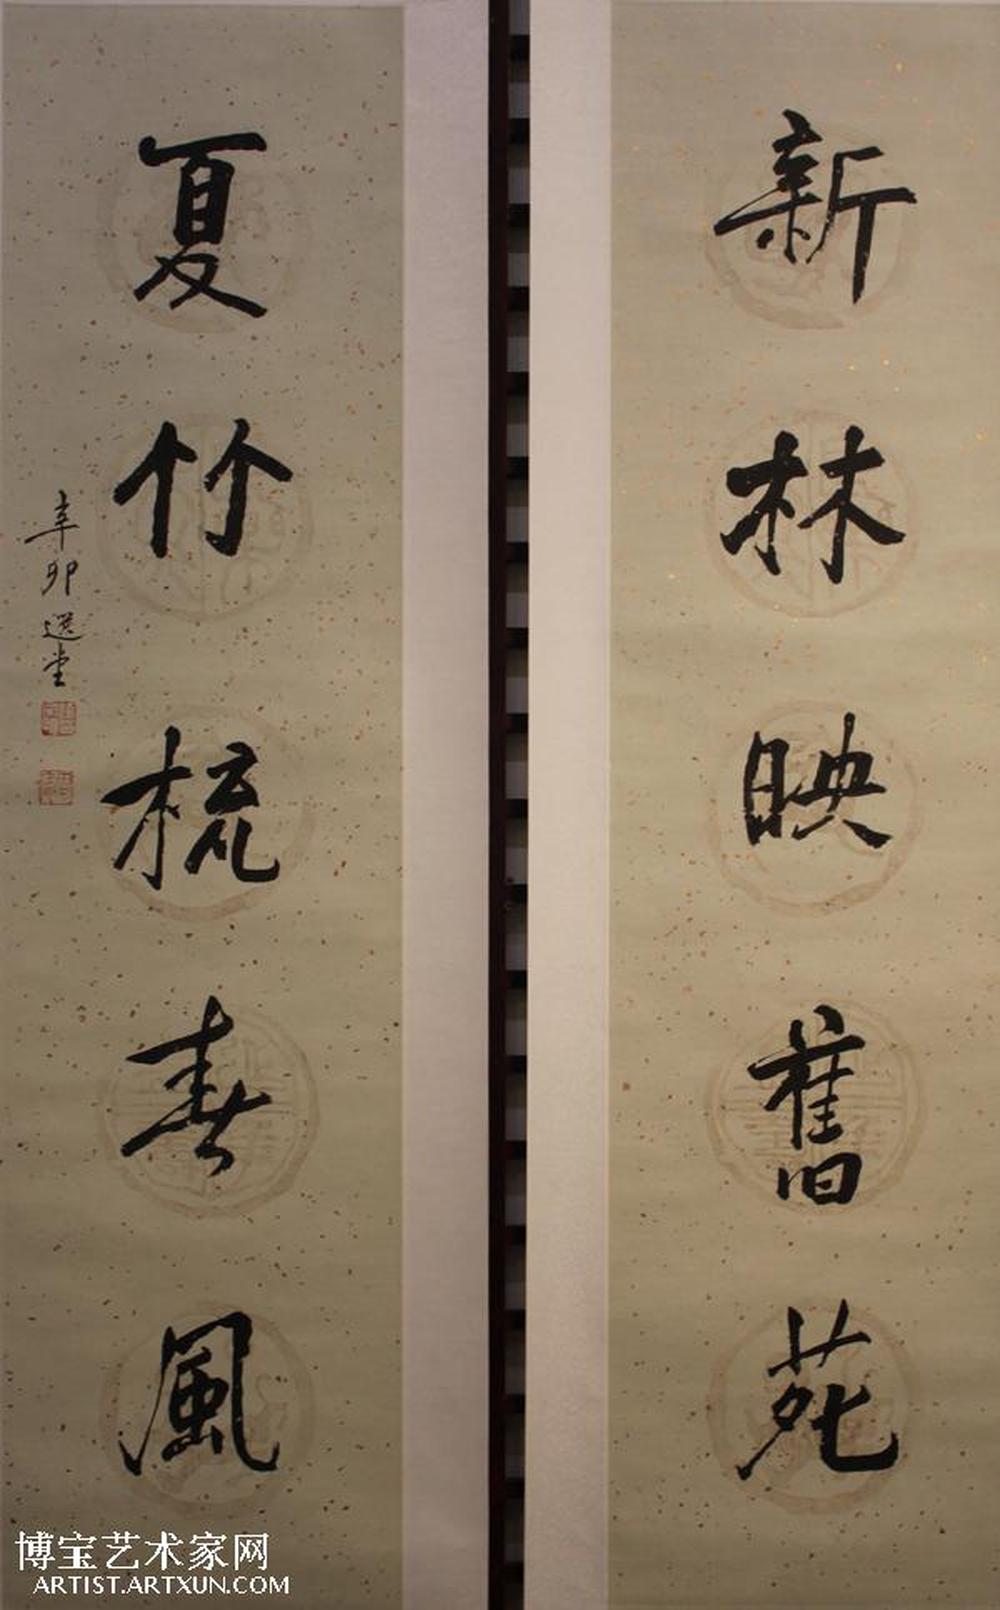 新林映舊苑
夏竹梳春風
辛卯選堂
博宝艺术家网
ARTIST.ARTXUN.COM